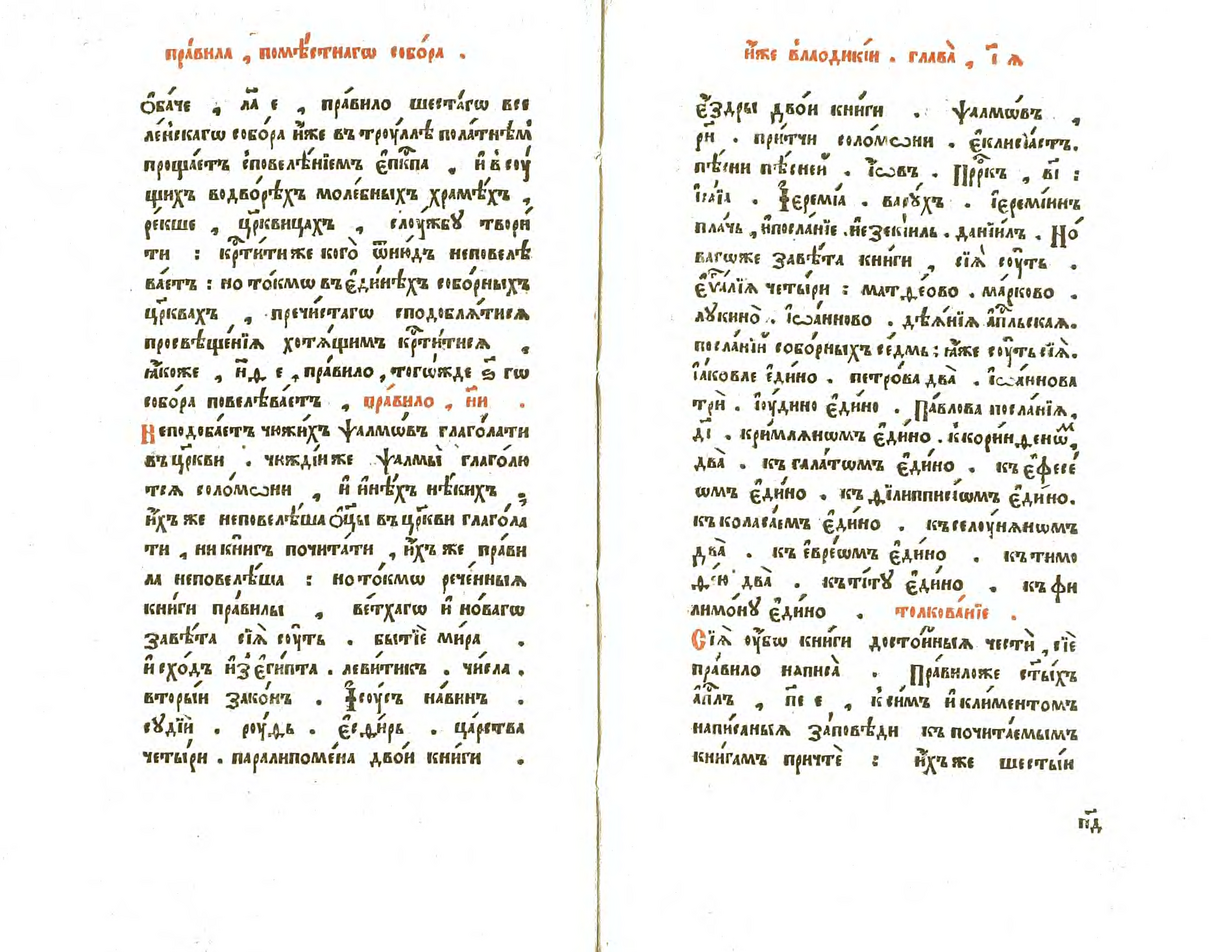 пра́вила , помѣ́стнагѡ собо́ра .
Ѻ҆ба́че , л҃а е , пра́вило шеста́гѡ все
ле́нскагѡ собо́ра и҆́же въ троу́ллѣ пола́тнѣм
проща́етъ споведе́нїемъ є҆п҃кпа , и҆ в соу
щихъ водво́рѣхъ моле́бныхъ хра́мѣхъ ,
ре́кше , цр҃квицахъ , слоу́жбꙋ твори́
ти : кр҃ти́ти же кого̀ ѿню́дъ неповелѣ
ва́етъ : но то́кмѡ въ є҆ди́нѣхъ собо́рныхъ
цр҃квахъ , пречи́стагѡ сподобля́тися
просвѣще́нїѧ хотѧ́щимъ кр҃ти́тисѧ ,
ꙗ҆́коже , н҃ѳ е , пра́вило , того́жде ѕ҃ гѡ
собо́ра повелѣва́етъ , пра́вило , н҃и .
Неподоба́етъ чюжи́хъ ѱалмѡ́въ глаго́лати
въ цр҃кви . чюждїи же ѱалмы̀ глаго́лю
тсѧ соломѡни , и҆ и҆нѣ́хъ нѣ́кихъ ,
и҆́хъ же неповелѣ́ша ѻ҆ц҃ы въ цр҃кви глаго́ла
ти , ни кни́гъ почита́ти , и҆́хъ же пра́ви
ла неповелѣ́ша : но то́кмѡ рече́нныѧ
кни́ги пра́вилы , ве́тхагѡ и҆ но́вагѡ
завѣ́та сїѧ̀ соу́ть . бытїѐ ми́ра .
и҆схо́дъ и҆з̾ є҆ги́пта . леви́тикъ . чи́сла .
вторы́и зако́нъ . І҆соу́съ нави́нъ .
сꙋдїй . роу́ѳь . є҆сѳи́рь . ца́рства
четы́ри . паралипоме́на двои́ кни́ги .
и҆́же влаодики́и . глава̀ , і҃ ѧ
є҆́здры двои́ кни́ги . ѱалмѡ́въ ,
р҃н . при́тчи соломѡ́ни . є҆клисїа́стъ.
пѣ́сни пѣ́сней . І҆ѡ́въ . Прⷪ҇ркъ , в҃і :
і҆са́їа . І҆еремі́а . вару́хъ . і҆еремі́инъ
пла́чь , и҆ посла́нїе . и҆езекі́иль . данїи́лъ . Но́
вагѡже завѣ́та кни́ги , сїѧ̀ соу́ть .
є҆ѵⷢ҇а́лїѧ четы́ри : матѳе́ово . ма́рково .
лукино̀ . і҆ѡа́нново . дѣѧ́нїѧ а҆пⷭ҇льскаѧ.
посла́нїй собо́рныхъ се́дмь : ꙗ҆́же соу́ть сїѧ̀.
і҆а́ковле є҆ди́но . петро́ва два̀ . і҆ѡа́ннова
трѝ . і҆ю́дино є҆ди́но . Па́влова посла́нїѧ,
д҃і . кри́млѧнѡмъ є҆ди́но . к кори́нѳенѡⷨ,
два̀ . къ гала́тѡмъ є҆ди́но . къ є҆фесе́
ѡмъ є҆ди́но . къ ѳили́пписїѡмъ є҆ди́но.
къ коласа́емъ є҆ди́но . къ селоу́нѧнѡмъ
два̀ . къ є҆вре́ѡмъ є҆ди́но . къ тимо
ѳе́ю два̀ . къ ти́тꙋ є҆ди́но . къ фи
лимо́нꙋ є҆ди́но . толкова́нїе .
Сїѧ̀ оу҆́бѡ кни́ги досто́йныѧ че́сти , сїѐ
пра́вило написа̀ . Пра́вило же ст҃ы́хъ
а҆пⷭ҇лъ , п҃е е , к си́мъ и҆ климентомъ
напи́саныѧ за́повѣди къ почита́емымъ
кни́гамъ причтѐ : и҆́хъ же шесты́и
п҃д